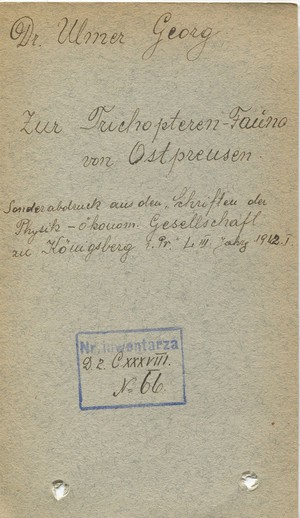 Dr. Ulmer Georg
Zur Trichopteren-Fauna
von Ostpreusen.
Sonderabdruck aus den "Schriften der
Physik-ökonom. Gesellschaft
zu Königsberg i. Pr." LIII. Jahrg 1912. I.
Nr. inwentarza
D 2. CXXXVIII.
No 66.